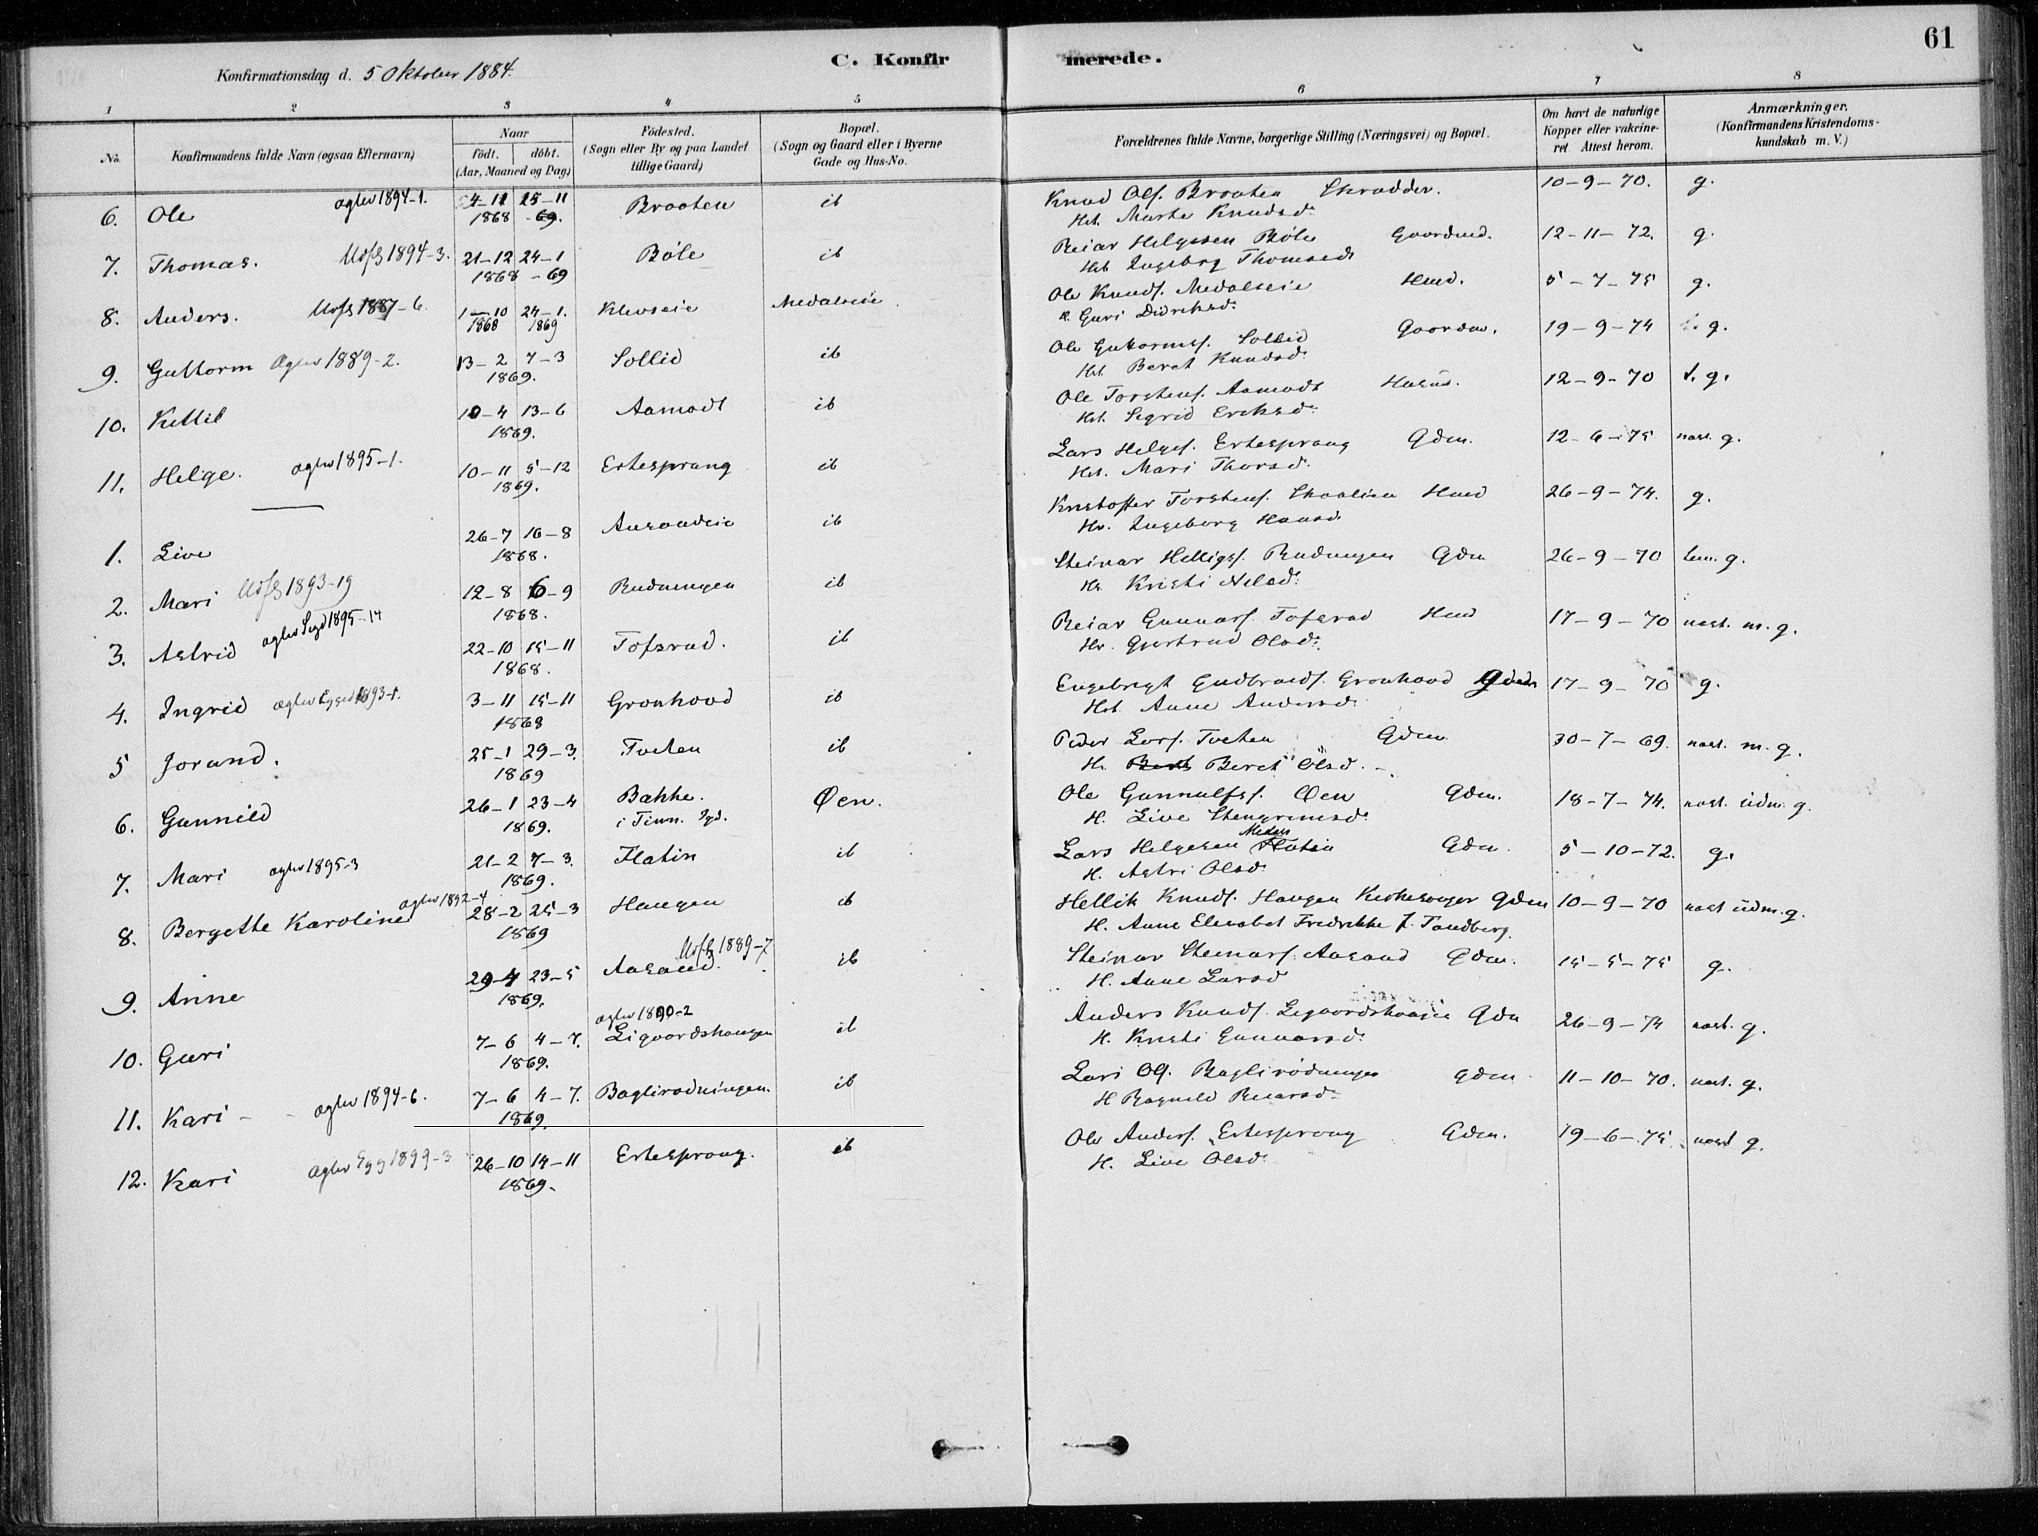 61
C. Konfirmerede.
Konfirmationsdag d. 5 Oktober 1884.
1 2 3 4 5 6 7 8
No. Konfirmandens fulde Navn (ogsaa Efternavn) Naar født. døbt. (Aar, Maaned og Dag) Fødested. (Sogn eller By og paa Landet tillige Gaard) Bopæl. (Sogn og Gaard eller i Byerne Gade og Hus-No. Forældrenes fulde Navne, borgerlige Stilling (Næringsvei) og Bopæl. Om havt de naturlige Kopper eller vakcineret Attest herom. Anmærkninger. (Konfirmandens Kristendomskundskab m. V.)
6. Ole agtev 1894-1. 4-11 1868 25-11 -69. Braaten ib Knud Ols. Braaten Skrædder. 10-9-70. g.
Hst. Marte Knudsd.
7. Thomas. Udfl 1894-3. 21-12 1868 24-1 -69 Bøle ib Reiar Helgesen Bøle Gaardmd. 12-11-72. g.
Hst Ingeborg Thomasd.
8. Anders. Udfl 1887-6. 1-10 1868 24-1. 1869 Klevseie Medalseie. Ole Knuds. Medalseie Hmd. 5-7-75 g.
H. Guri Didriksd.
9. Guttorm Agtev 1889-2. 13-2 7-3 1869. Sollid ib Ole Guttormss. Sollid Gaardm. 19-9-74 g.
Hst. Beret Knudsd.
10. Kittil 10-4 13-6 1869. Aamodt ib Ole Torstens. Aamodt 12-9-70 t. g.
Hst. Sigrid Eriksd.
11. Helge. agtev 1895-1. 10-11 5-12 1869. Ertesprang ib Lars Helges. Ertesprang Gdm. 12-6-75 næst. g.
Hst. Mari Thorsd.
1. Live 26-7 16-8 1868. ib Kristoffer Torstens. Hmd 26-9-74. g.
Hr. Ingeborg Hansd.
2. Mari Udfl 1893-19 12-8 6-9 1868. Rudningen ib Steinar Helligs. Rudningen Gdm 26-9-70 tem. g.
Hr. Kristi Nelsd.
3. Astrid agtev Sigd 1895-14 22-10 15-11 1868. Tofsrud. ib Reiar Gunnars. Tofsrud Hmd 17-9-70 næst. m. g.
Hr. Gjertrud Olsd.
4. Ingrid agtev Egged 1893-1. 3-11 15-11 1868 Grønhovd ib Engebrigt Gudbrands. Grønhovd Gdm 17-9-70 g.
Hst. Anne Andersd.
5 Jorand. 25-1 29-3. 1869 Tveten ib Peder Lars. Tveten Gdm 30-7-69. næst. m. g.
Hr. Beret Olsd.
6. Gunnild 26-1 23-4 1869. Bakke. i Tinn. Øen. Ole Gunnulfss. Øen Gdm. 18-7-74. næst. udm. g.
H. Live Stengrimsd.
7. Mari agtev 1895-3 21-2 7-3. 1869. Flatin ib Lars Helgesen Flatin Gdm. 5-10-72. g.
H. Astri Olsd.
8. Bergette Karoline agtev 1892-4 28-2 25-3 1869 Haugen ib Hellik Knuds. Haugen Kirkesanger Gdm 10-9-70 næst udm. g.
H. Anne Elisabet Fredrikke f. Tandberg.
9. Anne 29-4 23-5 1869. Aasand. Udfl 1889-7 ib Steinar Steinars. Aasand Gdm. 15-5-75 g.
H. Anne Larsd
10. Guri 7-6 4-7. 1869. agtev 1890-2 Ligaardshaugen ib Anders Knuds. Gdm 26-9-74 næst. g.
H. Kristi Gunnarsd.
11. Kari agtev 1894-6. 7-6 4-7. 1869. Baglirødningen. ib Lars Ols. Baglirødningen Gdm 11-10-70. næst. g.
H Ragnild Reiarsd.
12. Kari agtev Egg 1899-3 26-10 14-11 1869. Ertesprang. ib Ole Anders. Ertesprang Gdm. 19-6-75. næst g.
H. Live Olsd.